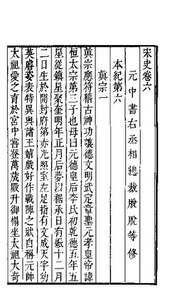 宋史卷六
元中書右丞相總裁脫脫等修
本紀第六
眞宗一
眞宗應符稽古神功讓德文明武定章聖元孝皇帝諱
恒太宗第三子也母曰元德皇后李氏初乾德五年五
星從鎭星聚奎明年正月后夢以裾承日有娠十二月
二日生於開封府第赤光照室左足指有文成天字幼
英睿姿表特異與諸王嬉戲好作戰陣之狀自稱元帥
太祖愛之育於宮中嘗登萬歲殿升御榻坐太祖大奇